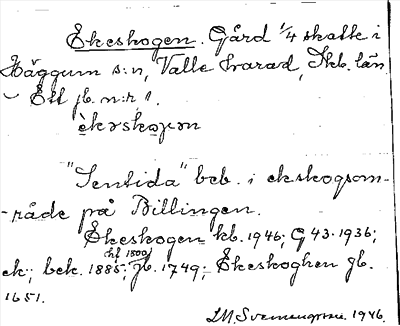 Ekeskogen. Gård 1/4 skatte i
Häggum s:n, Valle härad, Skb. län
Ett jb. n:r 1.
èkəskoɡən
"Sentida" beb. i ekskogsom-
-råde på Billingen.
Ekeskogen kb. 1946; G 43. 1936;
hf 1800
ek.; bek. 1885; jb. 1749; Ekeskoghen jb.
1651.
1946.